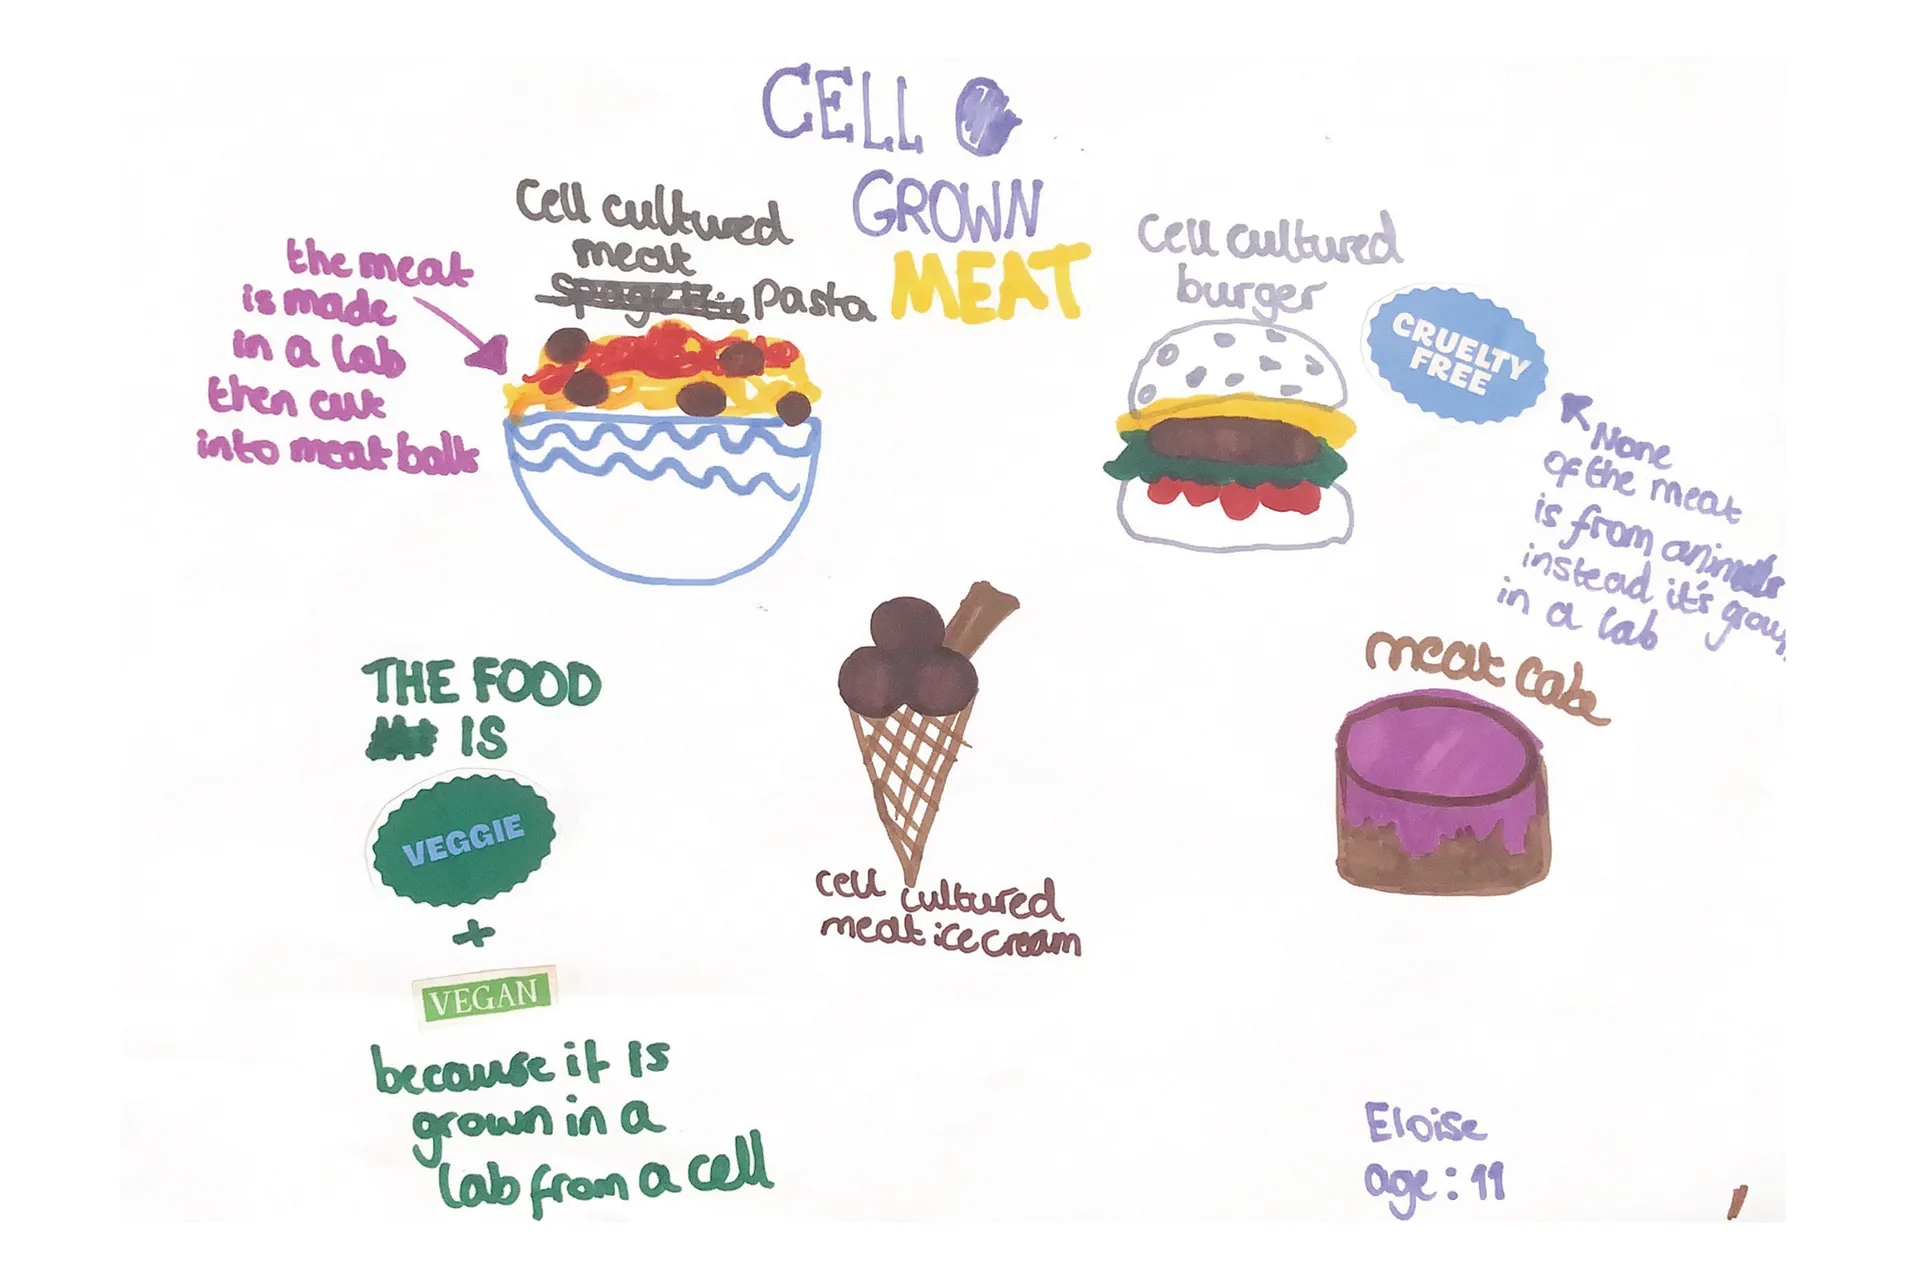 CELL
GROWN
MEAT
Cell cultured
meat
spagettie pasta
the meat
is made
in a lab
then cut
into meat balls
Cell cultured
burger
CRUELTY
FREE
None
of the meat
is from animals
instead it's grow
in a lab
meat cake
THE FOOD
IS
VEGGIE
+
VEGAN
because it is
grown in a
lab from a cell
cell cultured
meat ice cream
Eloise
age: 11